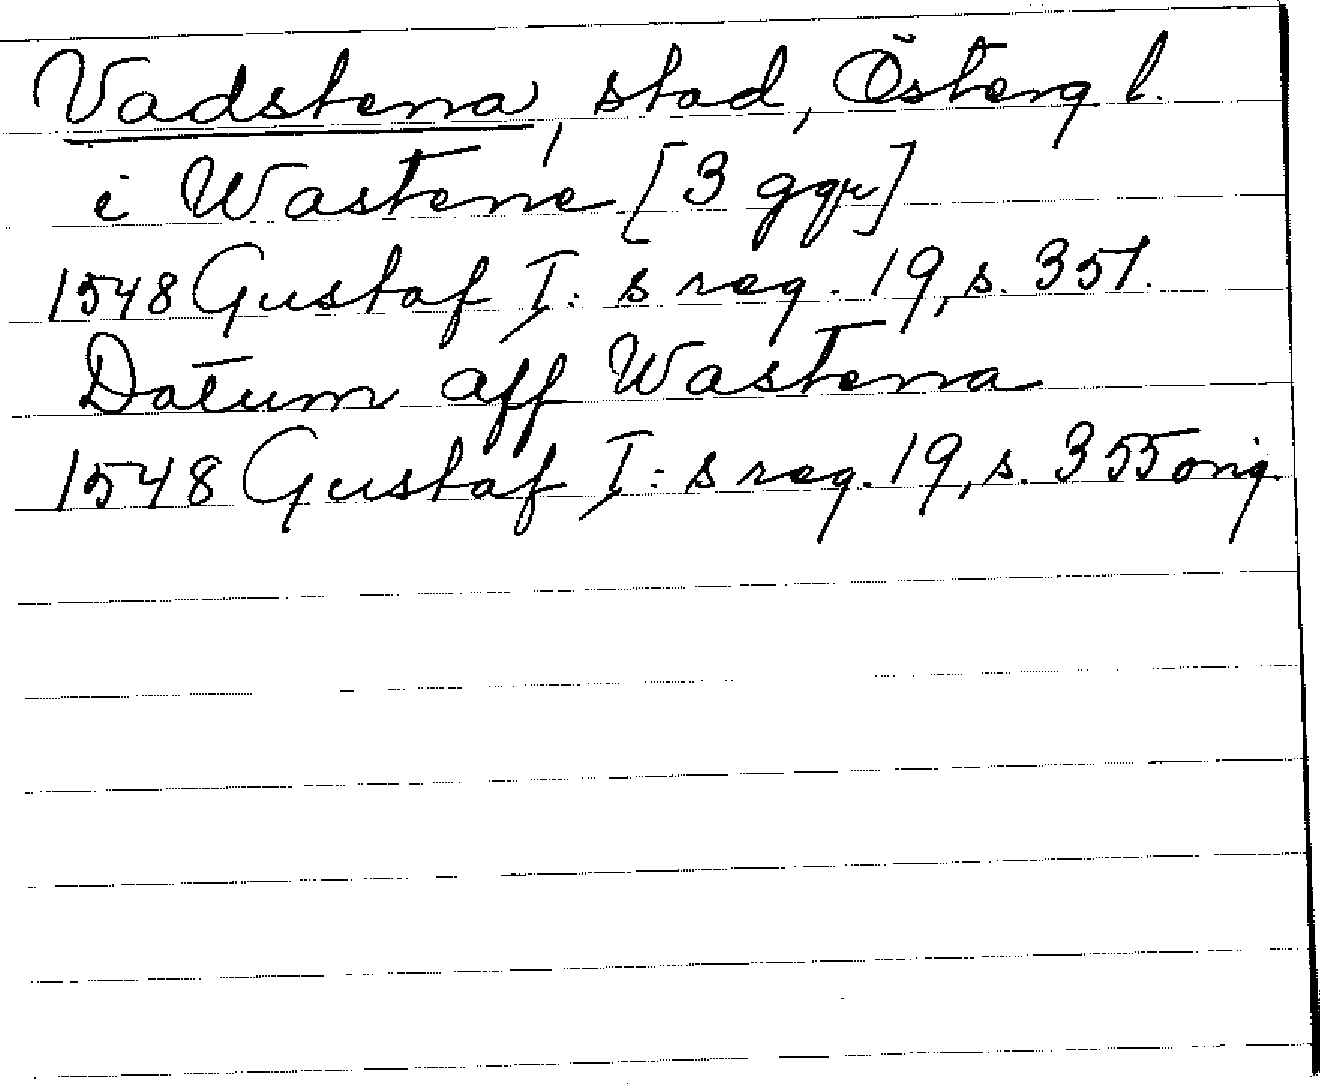 Vadstena, stad, Österg l.
i Wastene [3 ggr]
1548 Gustaf I: s reg. 19, s. 351.
Datum aff Wastena
1548 Gustaf I: s reg. 19, s. 355 orig